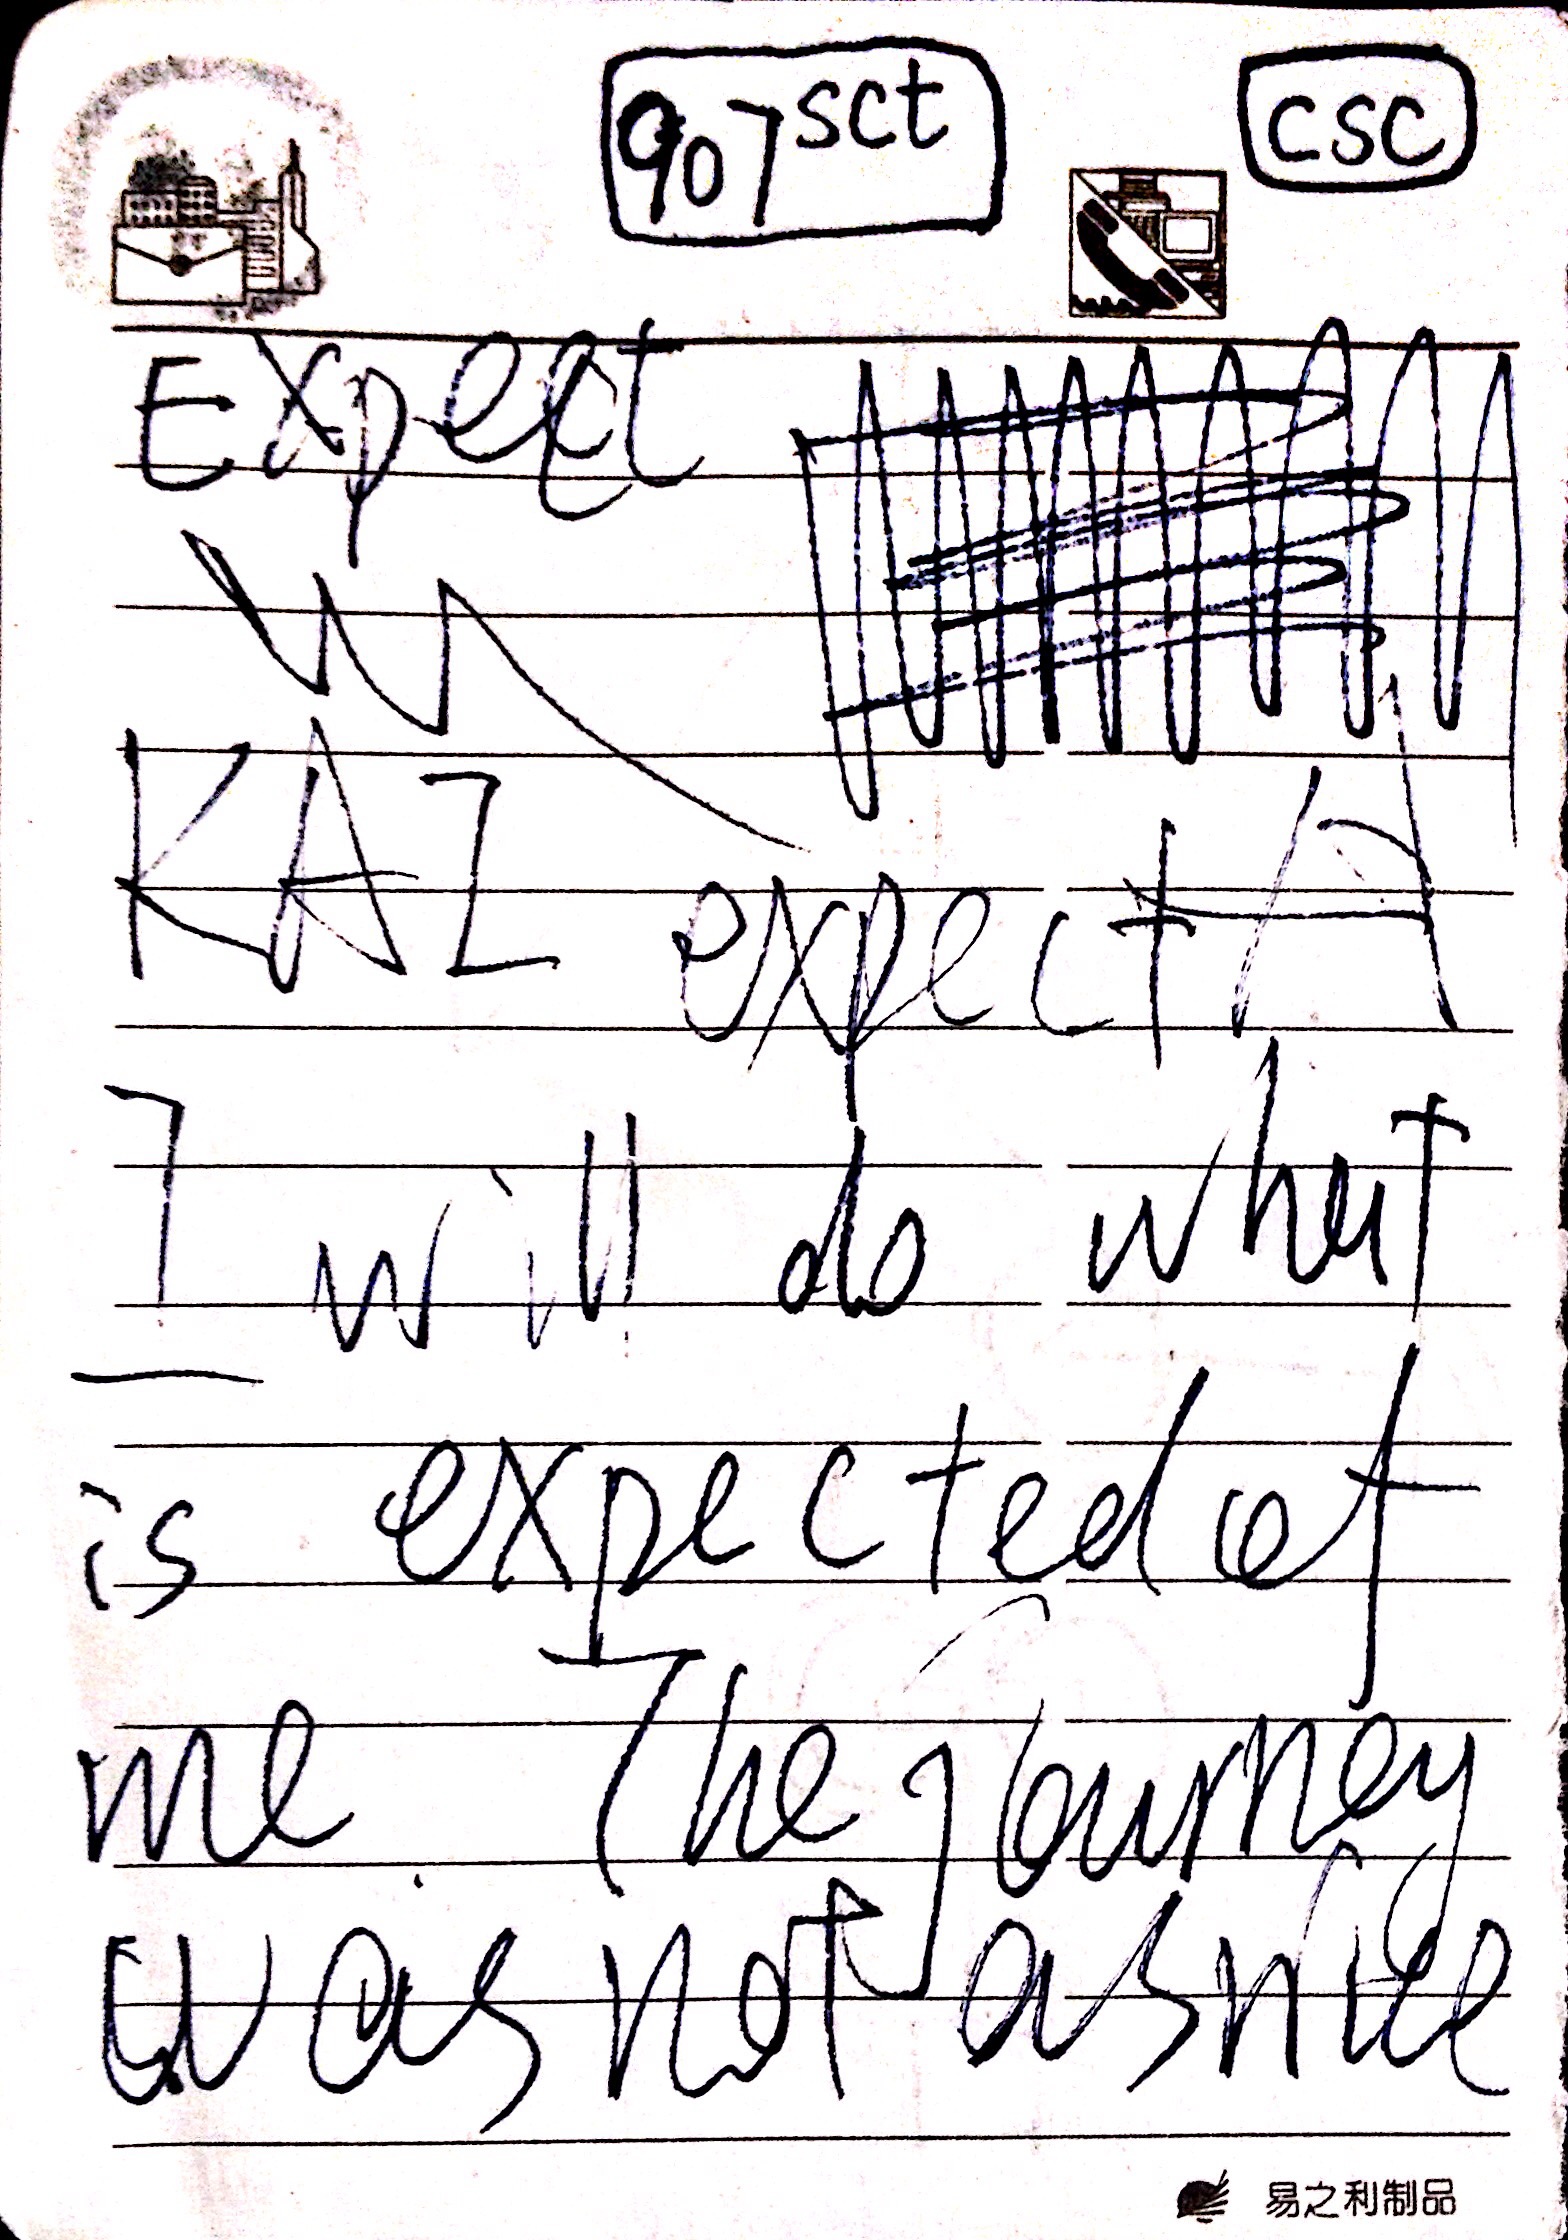 907 sct csc
Expect
KAI expect A
I will do what
is expected of
me The journey
was not as nice
易之利制品